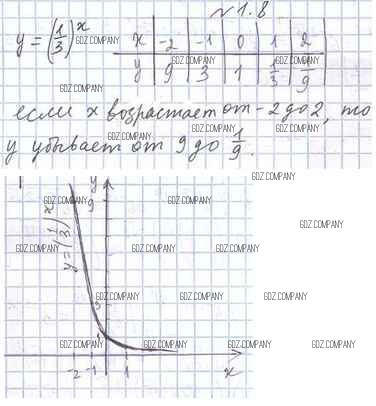 № 1.8
y = (1/3)^x GDZ.COMPANY
x | -2 | -1 | 0 | 1 | 2
y | 9 | 3 | 1 | 1/3 | 1/9
GDZ.COMPANY GDZ.COMPANY GDZ.COMPANY
GDZ.COMPANY
если x возрастает от -2 до 2, то
GDZ.COMPANY GDZ.COMPANY GDZ.COMPANY
y убывает от 9 до 1/9.
GDZ.COMPANY
y
9
GDZ.COMPANY GDZ.COMPANY GDZ.COMPANY
y = (1/3)^x
GDZ.COMPANY
GDZ.COMPANY GDZ.COMPANY GDZ.COMPANY
3
GDZ.COMPANY GDZ.COMPANY GDZ.COMPANY
1
GDZ.COMPANY GDZ.COMPANY GDZ.COMPANY GDZ.COMPANY
-2 -1 1 x